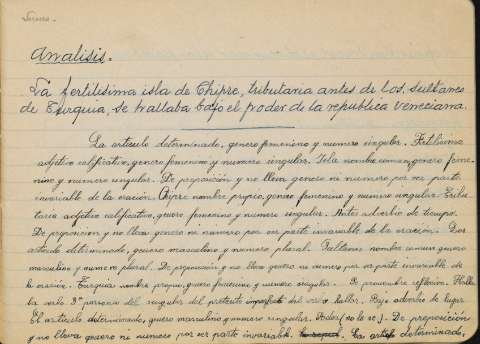 Analisis.
La fertilisima isla de Chipre, tributaria antes de los sultanes
de Turquia, se hallaba bajo el poder de la republica veneciana.
La articulo determinado, genero femenino y numero singular. Fertilisima
adjetivo calificativo, genero femenino y numero singular. Isla nombre comun, genero feme-
nino y numero singular. De preposición y no lleva genero ni numero por ser parte
invariable de la oración. Chipre nombre propio, genero femenino y numero singular. Tribu-
taria adjetivo calificativo, genero femenino y numero singular. Antes adverbio de tiempo.
De preposicion y no lleva genero ni numero por ser parte invariable de la oración. Los
articulo determinado, genero masculino y numero plural. Sultanes nombre comun genero
masculino y numero plural. De preposición y no lleva genero ni numero por ser parte invariable de
la oración. Turquia nombre propio, genero femenino y numero singular. Se pronombre reflexivo. Halla-
ba verbo 3ª persona del singular del preterito imperfecto del verbo hallar. Bajo adverbio de lugar
El articulo determinado, genero masculino y numero singular. Poder De preposición
y no lleva genero ni numero por ser parte invariable. La determinado,